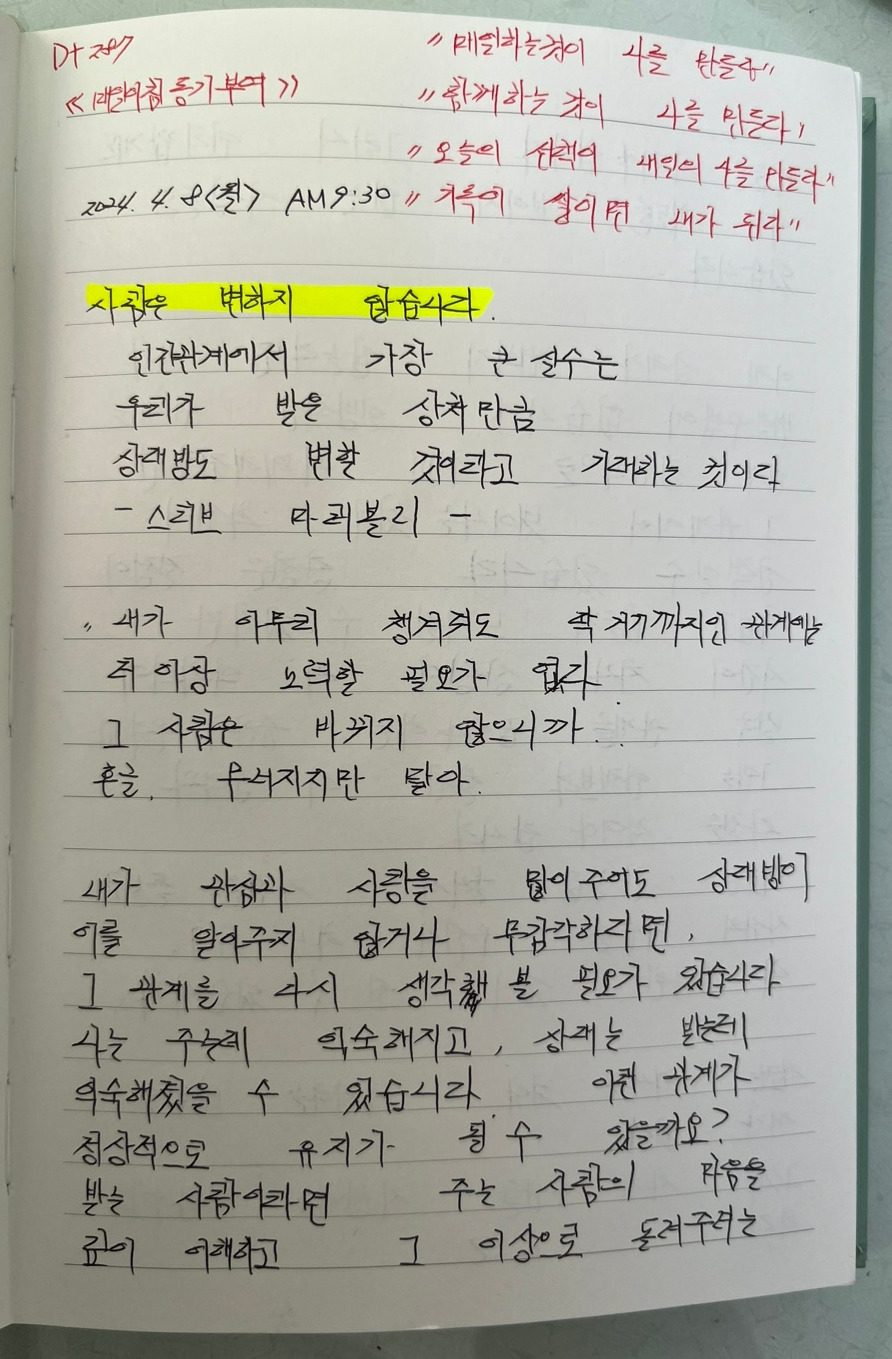 D+287
"매일하는것이 나를 만들고"
<<매일아침 동기부여>>
"함께하는 것이 나를 만든다"
"오늘의 선택이 내일의 나를 만든다"
2024. 4. 8 <월> AM 9:30
"기록이 쌓이면 내가 된다"
사람은 변하지 않습니다.
인간관계에서 가장 큰 실수는
우리가 받은 상처 만큼
상대방도 변할 것이라고 기대하는 것이다
- 스티브 마라볼리 -
" 내가 아무리 챙겨줘도 딱 거기까지인 관계에는
더 이상 노력할 필요가 없다
그 사람은 바뀌지 않으니까..
혼자 무너지지만 말아.
내가 관심과 사랑을 많이 주어도 상대방이
이를 알아주지 않거나 무감각하다면,
그 관계를 다시 생각해 볼 필요가 있습니다
나는 주는데 익숙해지고, 상대는 받는데
익숙해졌을 수 있습니다 이런 관계가
정상적으로 유지가 될 수 있을까요?
받는 사람이라면 주는 사람의 마음을
깊이 이해하고 그 이상으로 돌려주려는